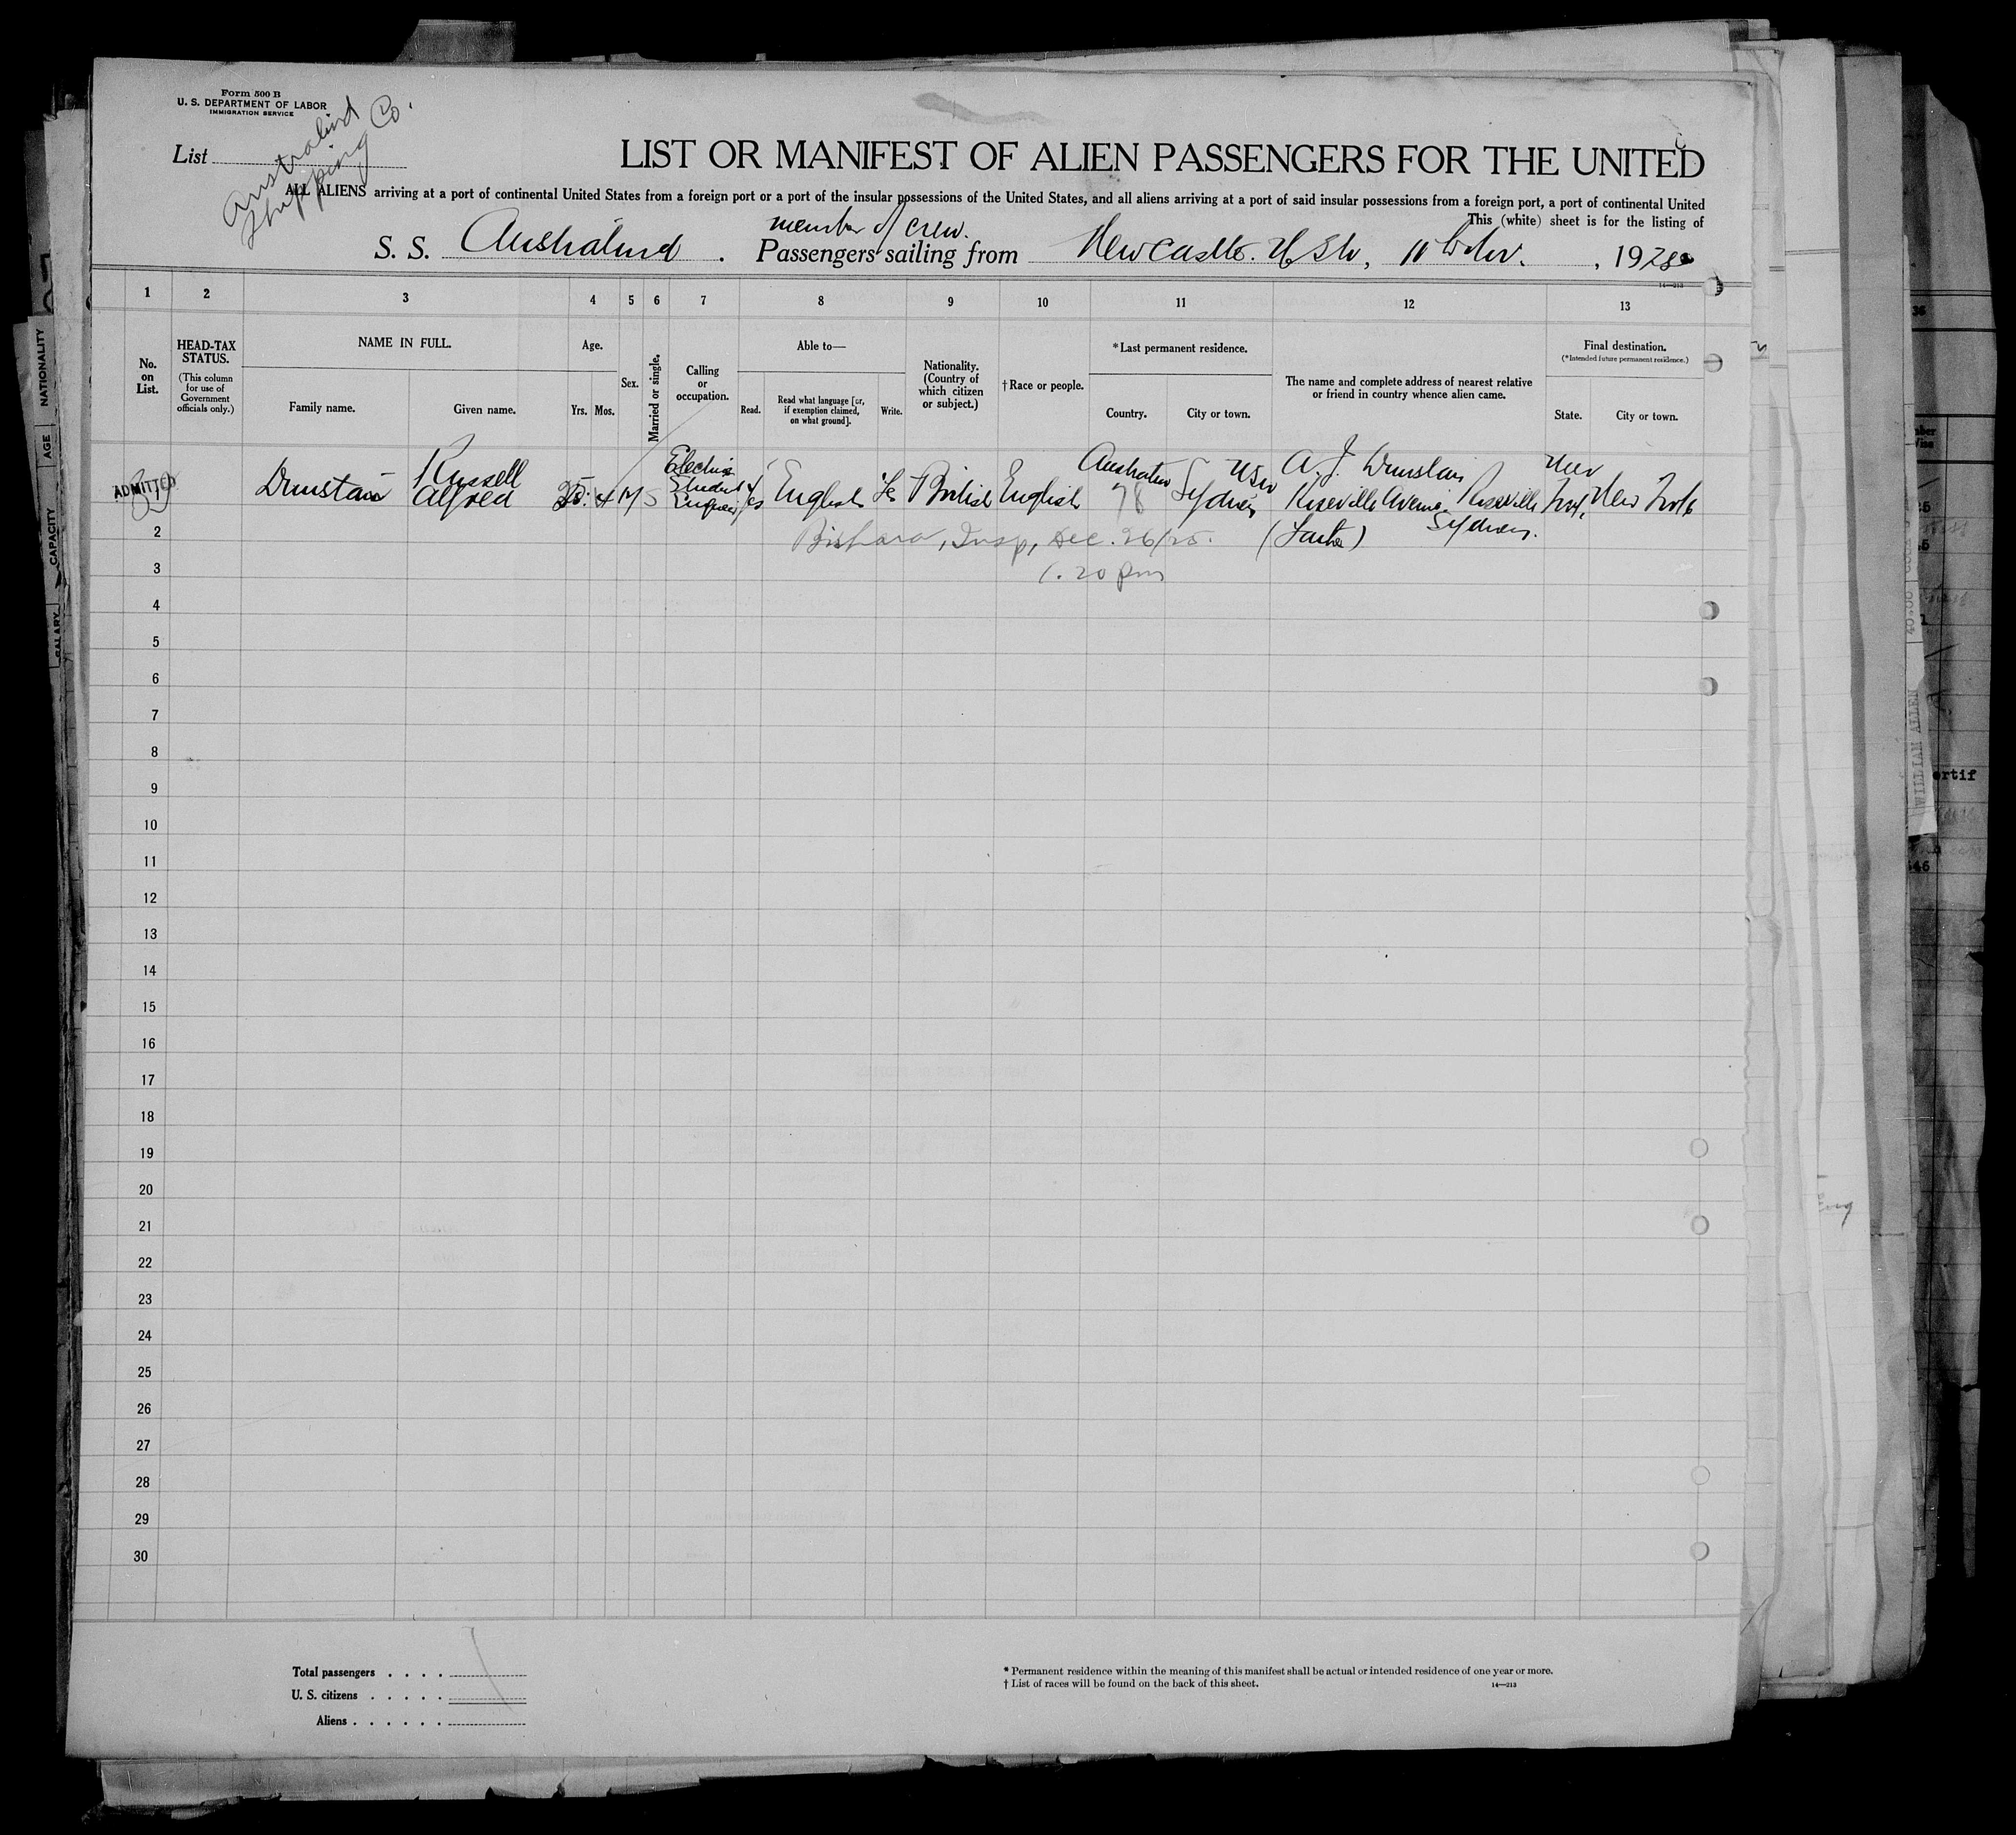 Form 500 B
U. S. DEPARTMENT OF LABOR
IMMIGRATION SERVICE
Australind
Shipping Co.
List
LIST OR MANIFEST OF ALIEN PASSENGERS FOR THE UNITED
ALL ALIENS arriving at a port of continental United States from a foreign port or a port of the insular possessions of the United States, and all aliens arriving at a port of said insular possessions from a foreign port, a port of continental United
This (white) sheet is for the listing of
member of crew.
S. S. Australind . Passengers sailing from Newcastle. N.S.W, 11th Nov. , 1925
14—213
1 2 3 4 5 6 7 8 9 10 11 12 13
No. on List.
HEAD-TAX STATUS.
(This column for use of Government officials only.)
NAME IN FULL.
Family name. Given name.
Age.
Yrs. Mos.
Sex.
Married or single.
Calling or occupation.
Able to—
Read.
Read what language [or, if exemption claimed, on what ground].
Write.
Nationality. (Country of which citizen or subject.)
†Race or people.
*Last permanent residence.
Country. City or town.
The name and complete address of nearest relative or friend in country whence alien came.
Final destination.
(*Intended future permanent residence.)
State. City or town.
ADMITTED
Dunstan Russell Alfred 25 4 M S Student Yes English Yes British English Australia Sydney NSW A. J. Dunstan Roseville Avenue Roseville Sydney. New York New York
98
(Father)
Insp, Dec. 26/25.
1.20 pm
2
3
4
5
6
7
8
9
10
11
12
13
14
15
16
17
18
19
20
21
22
23
24
25
26
27
28
29
30
Total passengers . . . .
U. S. citizens . . . . .
Aliens . . . . . .
* Permanent residence within the meaning of this manifest shall be actual or intended residence of one year or more.
† List of races will be found on the back of this sheet.
14—213
NATIONALITY
AGE
CAPACITY
SALARY
WILLIAM ALLEN
ertif
Eng